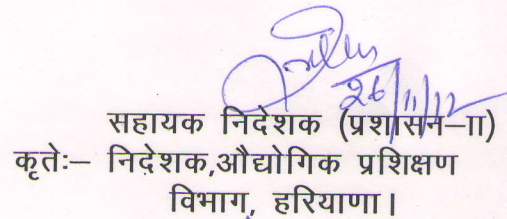 26/11/12
सहायक निदेशक (प्रशासन–II)
कृतेः– निदेशक,औद्योगिक प्रशिक्षण
विभाग, हरियाणा।